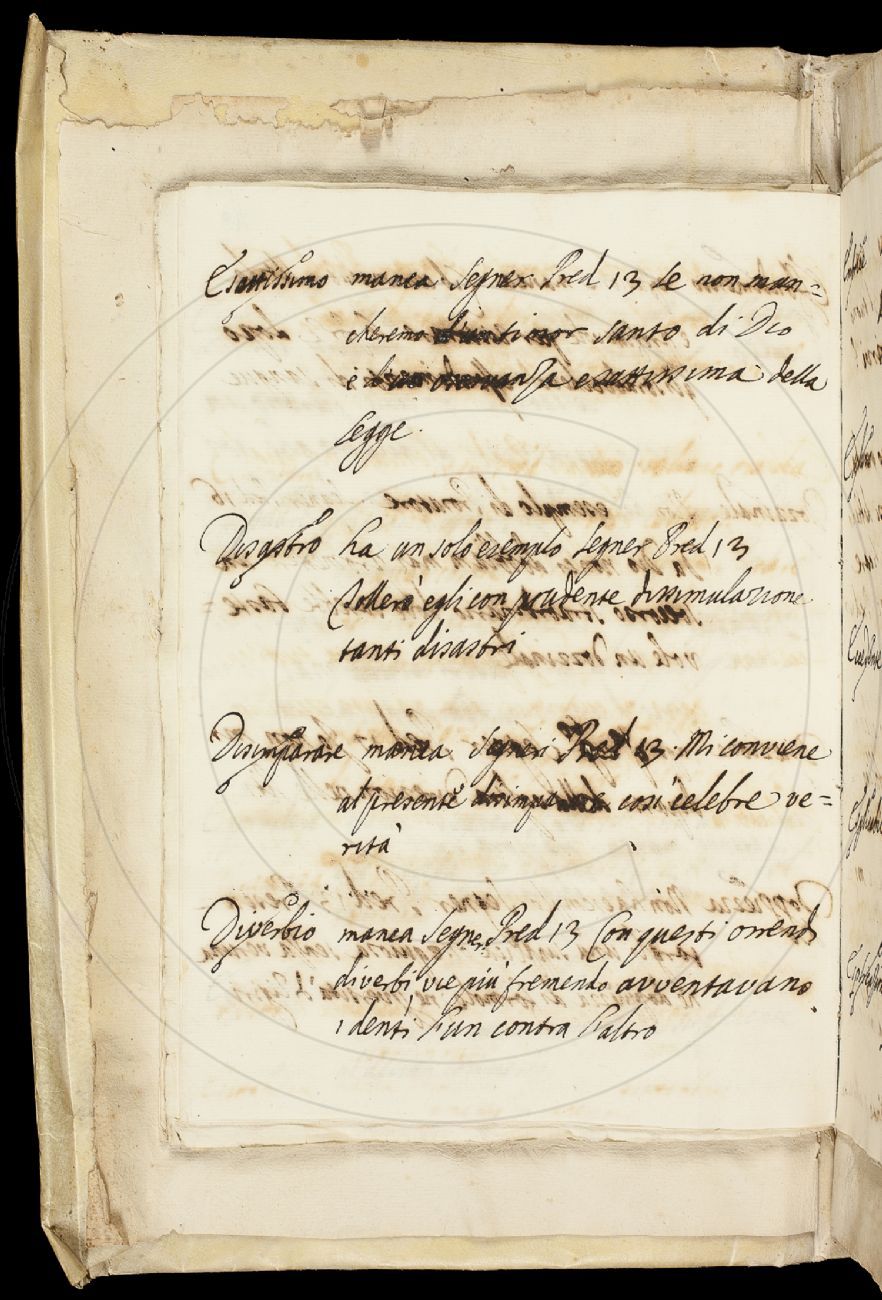 Esattissimo manca. Segner. Pred. 13 Se non man=
cheremo d'un timor santo di Dio
e d'un osservanza esattissima della
legge.
Disastro ha un solo esemplo Segner Pred 13
Tollerò egli con prudente dissimulazione
tanti disastri
Disimparare manca Segneri Pred 13. Mi conviene
al presente disimparare così celebre ve=
rità
Diverbio manca Segner. Pred 13 Con questi orrendi
diverbi vie più fremendo avventavano
i denti l'un contra l'altro